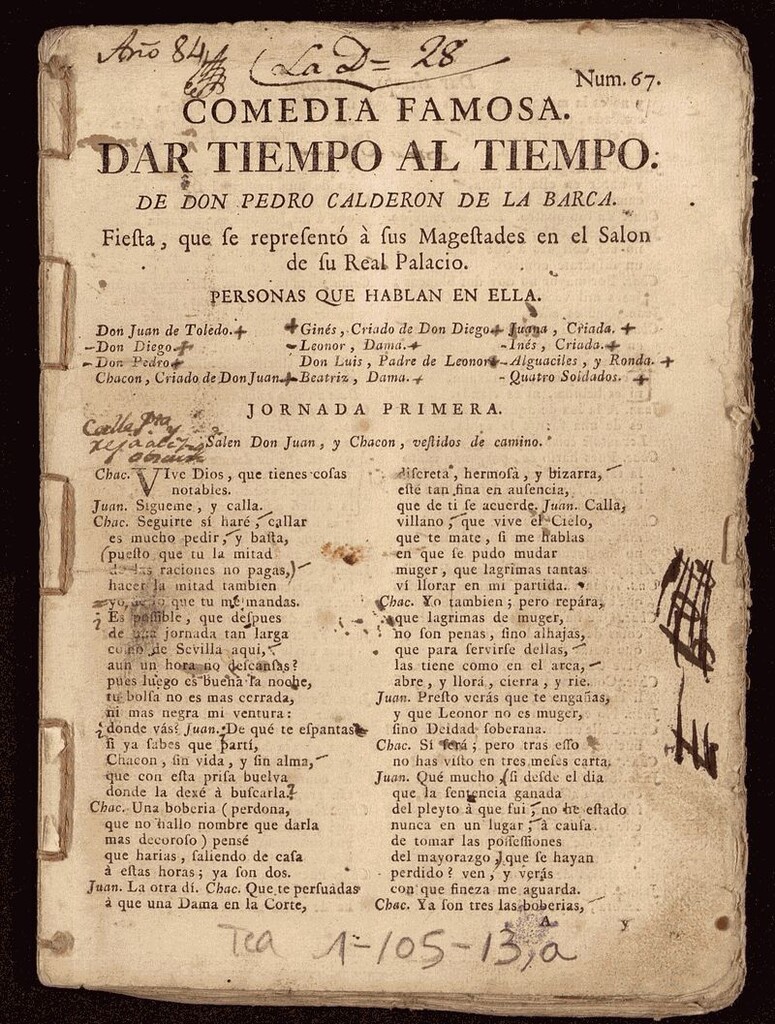 Año 84
La D= 28
Num. 67.
COMEDIA FAMOSA.
DAR TIEMPO AL TIEMPO.
DE DON PEDRO CALDERON DE LA BARCA.
Fieſta, que ſe repreſentó à ſus Mageſtades en el Salon
de ſu Real Palacio.
PERSONAS QUE HABLAN EN ELLA.
Don Juan de Toledo.
Don Diego.
Don Pedro
Chacon, Criado de Don Juan.
Ginés, Criado de Don Diego
Leonor, Dama.
Don Luis, Padre de Leonor
Beatriz, Dama.
Juana, Criada.
Inés, Criada.
Alguaciles, y Ronda.
Quatro Soldados.
JORNADA PRIMERA.
Calle
Salen Don Juan, y Chacon, veſtidos de camino.
Chac. VIve Dios, que tienes coſas
notables.
Juan. Sigueme, y calla.
Chac. Seguirte sí haré, callar
es mucho pedir, y baſta,
(pueſto que tu la mitad
de las raciones no pagas,)
hacer la mitad tambien
yo, de lo que tu me mandas.
¿Es poſsible, que deſpues
de una jornada tan larga
como de Sevilla aqui,
aun un hora no deſcanſas?
pues luego es buena la noche,
tu bolſa no es mas cerrada,
ni mas negra mi ventura:
¿donde vás? Juan. De qué te eſpantas
ſi ya ſabes que partí,
Chacon, ſin vida, y ſin alma,
que con eſta priſa buelva
donde la dexé à buſcarla?
Chac. Una boberia (perdona,
que no hallo nombre que darla
mas decoroſo) pensé
que harias, ſaliendo de caſa
à eſtas horas; ya ſon dos.
Juan. La otra dí. Chac. Que te perſuadas
à que una Dama en la Corte,
diſcreta, hermoſa, y bizarra,
eſté tan fina en auſencia,
que de ti ſe acuerde. Juan. Calla,
villano, que vive el Cielo,
que te mate, ſi me hablas
en que ſe pudo mudar
muger, que lagrimas tantas
ví llorar en mi partida.
Chac. Yo tambien; pero repára,
que lagrimas de muger,
no ſon penas, ſino alhajas,
que para ſervirſe dellas,
las tiene como en el arca,
abre, y llorá, cierra, y rie.
Juan. Preſto verás que te engañas,
y que Leonor no es muger,
ſino Deidad ſoberana.
Chac. Sí ſerá; pero tras eſſo
no has viſto en tres meſes carta.
Juan. Qué mucho, (ſi deſde el dia
que la ſentencia ganada
del pleyto à que fui, no he eſtado
nunca en un lugar, à cauſa
de tomar las poſſeſſiones
del mayorazgo) que ſe hayan
perdido? ven, y verás
con que fineza me aguarda.
Chac. Ya ſon tres las boberias,
A
y
Tea 1-105-13,a